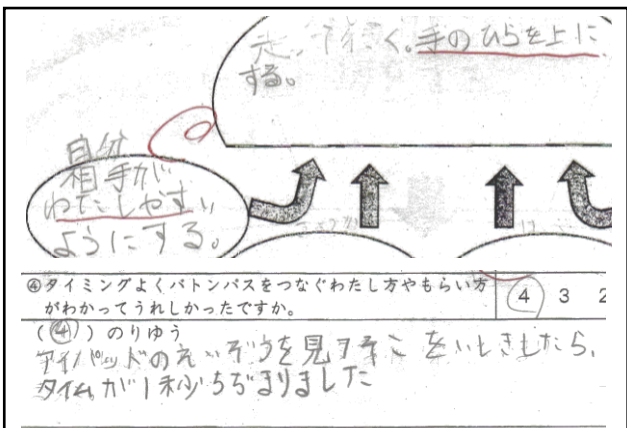 く。手のひらを上に
する。
自分
相手が
わたしやすい
ようにする。
④タイミングよくバトンパスをつなぐわたし方やもらい方
がわかってうれしかったですか。
4 3 2
(④)のりゆう
アイパッドのえいぞうを見てそこをいしきしたら、
タイムが1秒ちぢまりました